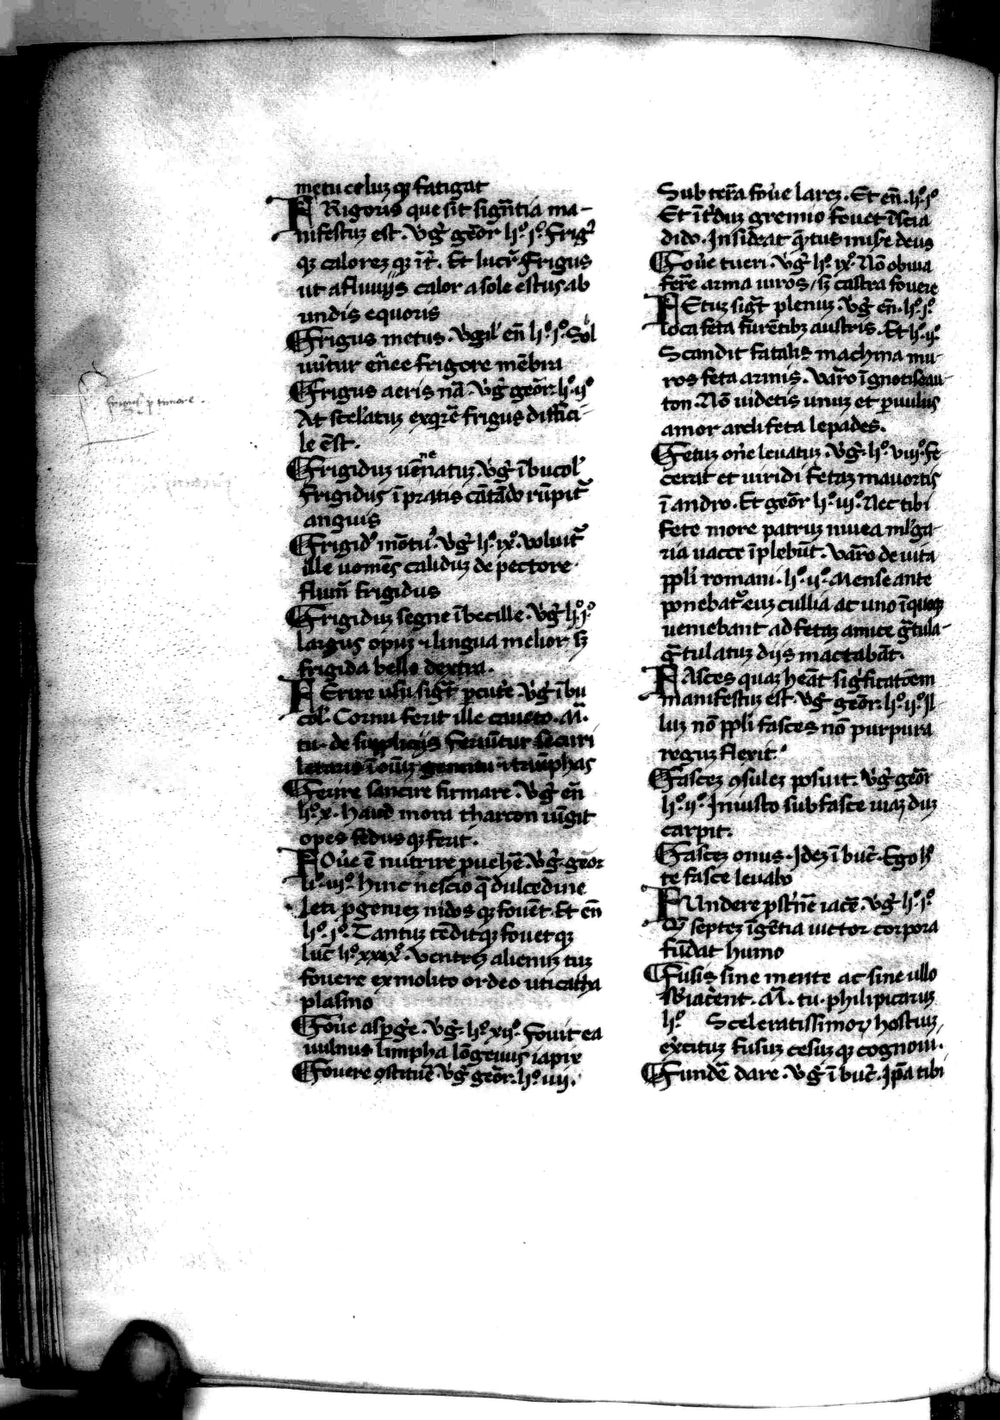 metu celuꝫ qꝫ fatigat
FRigoris que sīt sigꝰntia ma-
nifestuꝫ est. v̄g̓ geōr lịº. iº. Frigꝰ
qꝫ caloreꝫ qꝫ it̓. Et lucr̓ Frigus
ut a fluuijs calor a sole estus ab
undis equoris
Frigus metus. v̄gil̓ en̄ liº. iº. Sol
uūtur en̄ee frigore mēbra
Frigus aeris nā v̄g̓ geōr. liº. iiº
At scelatuꝫ exqr̄e frigus diffici-
le est.
Frigiduꝫ uenenatuꝫ v̄g̓ ī bucol̓
frigidus ī pratis cātādo rūpit̓
anguis
Frigid̓ mōtu᷑. v̄g̓ liº. ixº. voluit̓
ille uomēs caliduꝫ de pectore
flum̄ frigidus
Frigiduꝫ segne ībecille. v̄g̓ liº.
largus opuꝫ ⁊ lingua melior sꝫ
frigida bello dextra.
FErire usu sigt̄ ꝑcut̓e. v̄g̓ ī bu
col̓. Cornu ferit ille caueto. M̄.
tu. de suppliciis Feriūtur securi
Ferire sancire firmare. v̄g̓ en̄
liº. x. haud mora tharcon iūgit
opes fedus qꝫ ferit.
FOu̓e ē nutrire ꝓuehē. v̄g̓. geōr
li. iiiiº. hinc nescio q̄ dulcedine
leti ꝓgenieꝫ nidos qꝫ fouēt. Et en̄
liº. iº. Tantuꝫ tēdit qꝫ fouet qꝫ
luc̄ liº. xxixº. ventreꝫ alienuꝫ tuꝫ
fouere ex molito ordeo uti catha
plasmo
Fou̓e asꝑg̓e. v̄g̓. liº. xiiº. Fouit ea
uulnus limpha lōgeuus iapix
Fouere ꝯstituē v̄g̓ geōr. liº. iiii.
Sub ter̄a fou̓e lareꝫ. Et en̄. liº. iº
Et it̓duꝫ gremio fouet īscia
dido. Insideat q̄tus mise deus
Fou̓e tueri. v̄g̓ liº. ixº. Nō obuia
ferre arma uiros / sꝫ castra fouere
FEtus sigt̄ plenuꝫ. v̄g̓ en̄. liº. iº.
loca feta fur̄entibꝫ austris. Et liº. iiº.
Scandit fatalis machina mu-
ros feta armis. Var̄o ī gnotiseau-
ton. Nō uidetis unuꝫ et ꝑuulus
amor ardi feta lepades.
Fetuꝫ on̓e leuatuꝫ. v̄g̓. liº. viiiº. Fe
cerat et uiridi fetaꝫ mauortis
ī andro. Et geōr liº. iiiº. Nec tibi
fete more patruꝫ niuea ml̓ga-
ria uacce īplebūt. Var̄o de uita
ppli romani. liº. iiº. Mense ante
ponebat᷑ eiuꝫ cullia ac uno ī quoqꝫ
ueniebant ad fetaꝫ amice g̓tula-
g̓tulatuꝫ diis mactabāt.
FAsces quaꝫ heāt sigficatōem
manifestuꝫ est. v̄g̓ geōr. liº. iiº. Il
luꝫ nō ppli fasces nō purpura
reguꝫ flexit.
Fasceꝫ ꝯsuleꝫ posuit. v̄g̓ geōr
liº. iiº. Iniusto sub fasce uiaꝫ duꝫ
carpit.
Fasceꝫ onus. Ideꝫ ī buc̄. Ego hº
te fasce leuabo
FUndere ꝓst̓nē iacē. v̄g̓ liº. iº.
septeꝫ īgētia uictor corpora
fūdat humo
Fusis sine mente ac sine ullo
M̄. tu. philipicaruꝫ
liº Sceleratissimoꝝ hostiuꝫ
exercituꝫ fusuꝫ cesuꝫ qꝫ cognoui.
Fundē dare. v̄g̓ ī buc̄. Ip̄a tibi